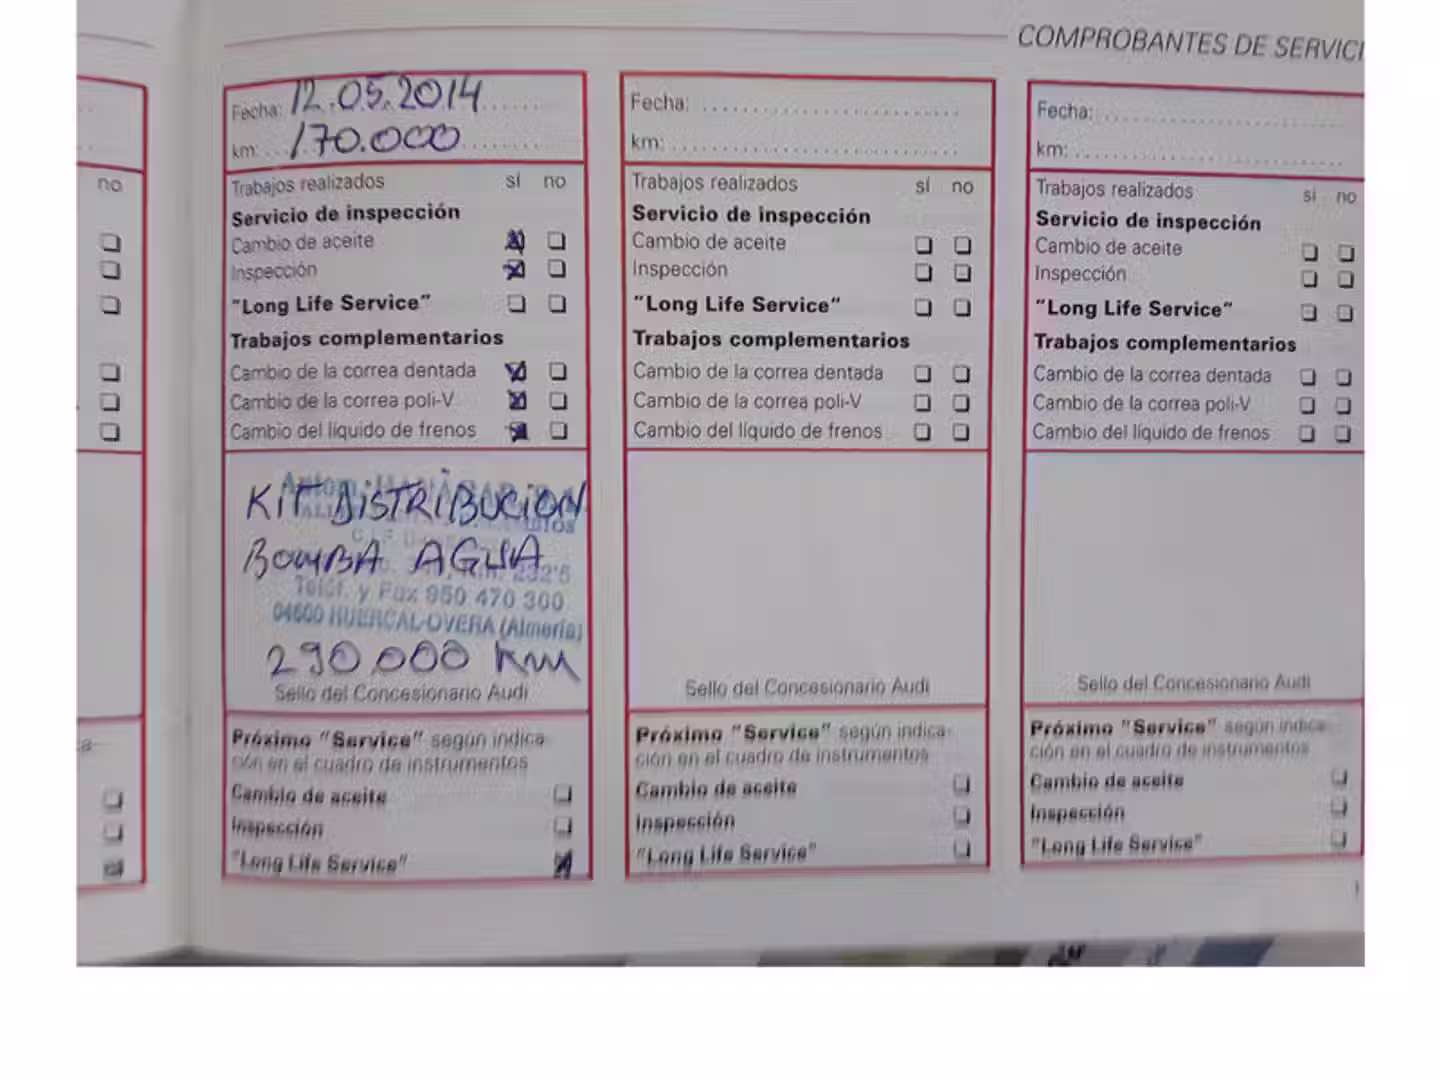 COMPROBANTES DE SERVICI
no
Fecha: 12.05.2014
km: 170.000
Trabajos realizados sí no
Servicio de inspección
Cambio de aceite
Inspección
"Long Life Service"
Trabajos complementarios
Cambio de la correa dentada
Cambio de la correa poli-V
Cambio del líquido de frenos
KIT DISTRIBUCION
BOMBA AGUA
232'5
Teléf. y Fax 950 470 300
04600 HUERCAL-OVERA (Almería)
290.000 km
Sello del Concesionario Audi
Próximo "Service" según indica-
ción en el cuadro de instrumentos
Cambio de aceite
Inspección
"Long Life Service"
Fecha:
km:
Trabajos realizados sí no
Servicio de inspección
Cambio de aceite
Inspección
"Long Life Service"
Trabajos complementarios
Cambio de la correa dentada
Cambio de la correa poli-V
Cambio del líquido de frenos
Sello del Concesionario Audi
Próximo "Service" según indica-
ción en el cuadro de instrumentos
Cambio de aceite
Inspección
"Long Life Service"
Fecha:
km:
Trabajos realizados sí no
Servicio de inspección
Cambio de aceite
Inspección
"Long Life Service"
Trabajos complementarios
Cambio de la correa dentada
Cambio de la correa poli-V
Cambio del líquido de frenos
Sello del Concesionario Audi
Próximo "Service" según indica-
ción en el cuadro de instrumentos
Cambio de aceite
Inspección
"Long Life Service"